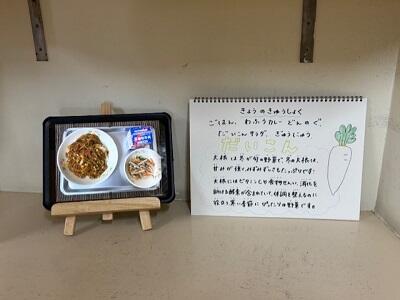 きょうのきゅうしょく
ごはん、わふうカレーどんのぐ、
だいこんサラダ、ぎゅうにゅう
だいこん
大根は冬が旬の野菜で、冬の大根は、
甘みが強く、みずみずしさもたっぷりです!
大根にはビタミンCや食物せんい、消化を
助ける酵素が含まれていて、体調を整えるのに
役立つ、寒い季節にぴったりな野菜です。